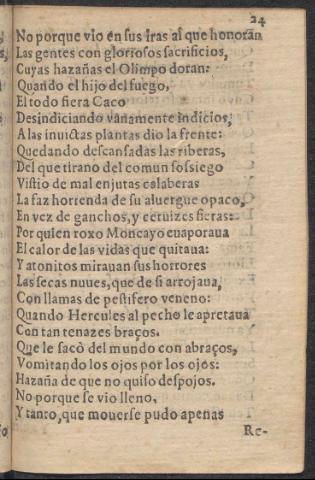 24
No porque vio en sus iras al que honoran
Las gentes con gloriosos sacrificios,
Cuyas hazañas el Olimpo doran:
Quando el hijo del fuego,
El todo fiera Caco
Desindiciando vanamente indicios,
A las inuictas plantas dio la frente:
Quedando descansadas las riberas,
Del que tirano del comun sossiego
Vistio de mal enjutas calaberas
La faz horrenda de su aluergue opaco,
En vez de ganchos, y ceruizes fieras:
Por quien roxo Moncayo euaporaua
El calor de las vidas que quitaua:
Y atonitos mirauan sus horrores
Las secas nuues, que de si arrojaua,
Con llamas de pestifero veneno:
Quando Hercules al pecho le apretaua
Con tan tenazes braços.
Que le sacò del mundo con abraços,
Vomitando los ojos por los ojos:
Hazaña de que no quiso despojos.
No porque se vio lleno,
Y tanto, que mouerse pudo apenas
Re-